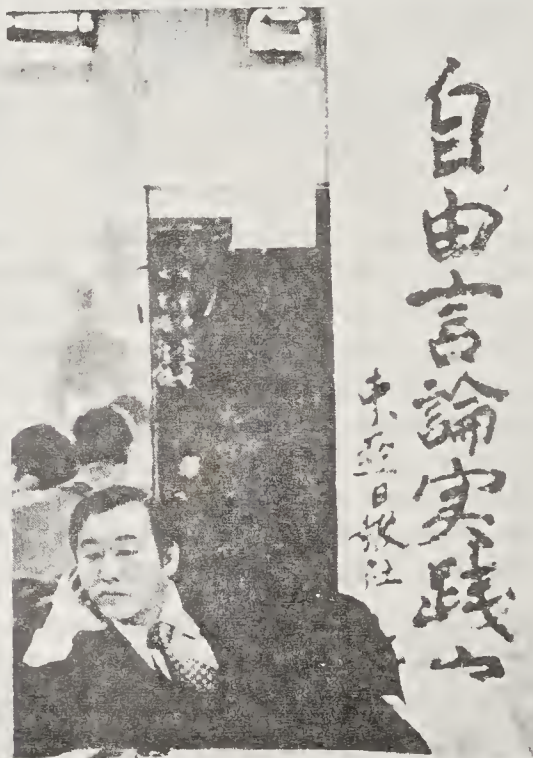 自由言論実践
東亞日報社